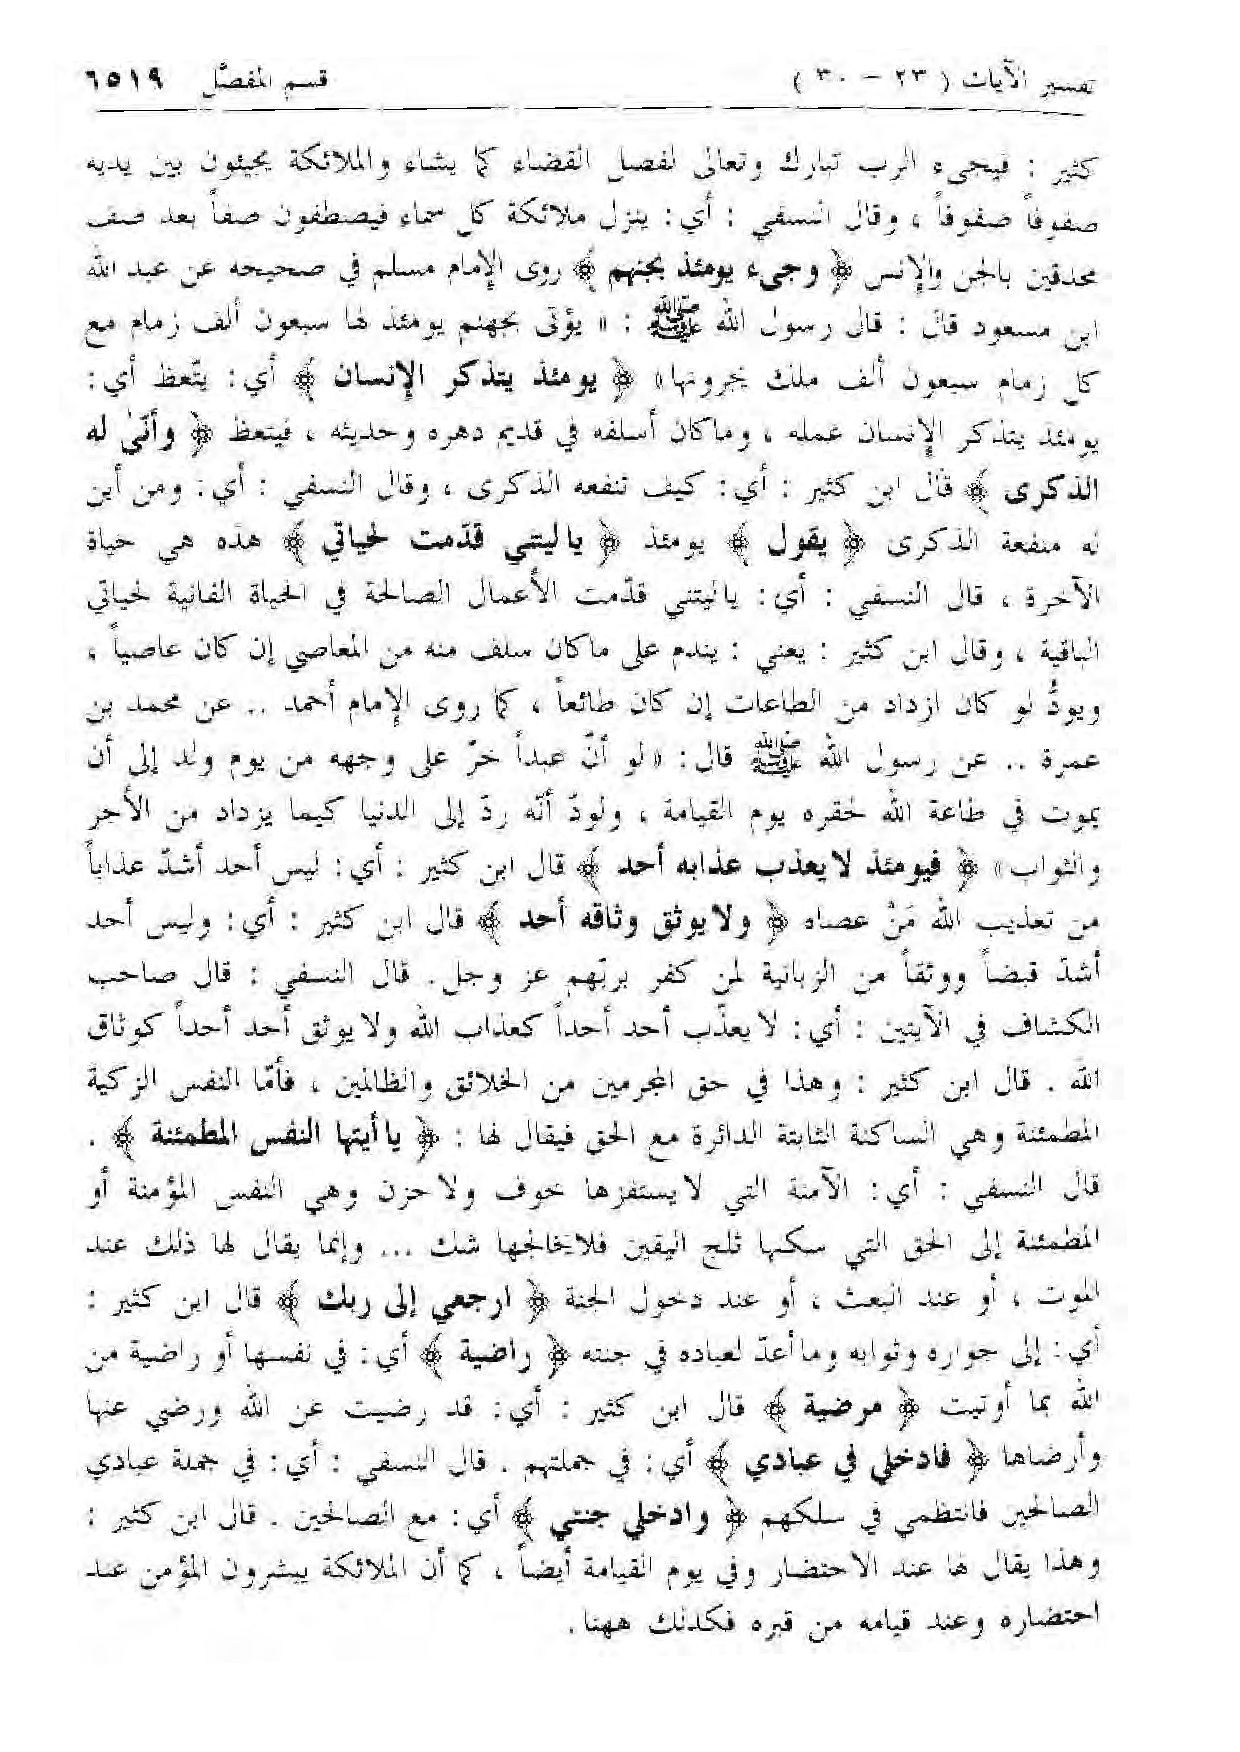 تفسير الآيات ( ٢٣ - ٣٠ ) قسم المفصَّل ٦٥١٩
كثير : فيجيء الرب تبارك وتعالى لفصل القضاء كما يشاء والملائكة يجيئون بين يديه
صفوفاً صفوفاً ، وقال النسفي : أي : ينزل ملائكة كل سماء فيصطفون صفاً بعد صف
محدقين بالجن والإنس ﴿ وجيء يومئذ بجهنم ﴾ روى الإمام مسلم في صحيحه عن عبد الله
ابن مسعود قال : قال رسول الله ﷺ : « يؤتى بجهنم يومئذ لها سبعون ألف زمام مع
كل زمام سبعون ألف ملك يجرونها» ﴿ يومئذ يتذكر الإنسان ﴾ أي : يتّعظ أي :
يومئذ يتذكر الإنسان عمله ، وماكان أسلفه في قديم دهره وحديثه ، فيتعظ ﴿ وأنّى له
الذكرى ﴾ قال ابن كثير : أي : كيف تنفعه الذكرى ، وقال النسفي : أي : ومن أين
له منفعة الذكرى ﴿ يقول ﴾ يومئذ ﴿ ياليتني قدّمت لحياتي ﴾ هذه هي حياة
الآخرة ، قال النسفي : أي : ياليتني قدّمت الأعمال الصالحة في الحياة الفانية لحياتي
الباقية ، وقال ابن كثير : يعني : يندم على ماكان سلف منه من المعاصي إن كان عاصياً ،
ويودُّ لو كان ازداد من الطاعات إن كان طائعاً ، كما روى الإمام أحمد .. عن محمد بن
عمرة .. عن رسول الله ﷺ قال : «لو أنّ عبداً خرّ على وجهه من يوم ولد إلى أن
يموت في طاعة الله لحقره يوم القيامة ، ولودّ أنّه ردّ إلى الدنيا كيما يزداد من الأجر
والثواب» ﴿ فيومئذ لايعذب عذابه أحد ﴾ قال ابن كثير : أي : ليس أحد أشدّ عذاباً
من تعذيب الله مَنْ عصاه ﴿ ولايوثق وثاقه أحد ﴾ قال ابن كثير : أي : وليس أحد
أشدّ قبضاً ووثقاً من الزبانية لمن كفر بربّهم عز وجل . قال النسفي : قال صاحب
الكشاف في الآيتين : أي : لايعذّب أحد أحداً كعذاب الله ولايوثق أحد أحداً كوثاق
الله . قال ابن كثير : وهذا في حق المجرمين من الخلائق والظالمين ، فأمّا النفس الزكية
المطمئنة وهي الساكنة الثابتة الدائرة مع الحق فيقال لها : ﴿ ياأيتها النفس المطمئنة ﴾ .
قال النسفي : أي : الآمنة التي لايستفزها خوف ولاحزن وهي النفس المؤمنة أو
المطمئنة إلى الحق التي سكنها ثلج اليقين فلايخالجها شك ... وإنما يقال لها ذلك عند
الموت ، أو عند البعث ، أو عند دخول الجنة ﴿ ارجعي إلى ربك ﴾ قال ابن كثير :
أي : إلى جواره وثوابه وماأعدّ لعباده في جنته ﴿ راضية ﴾ أي : في نفسها أو راضية من
الله بما أوتيت ﴿ مرضية ﴾ قال ابن كثير : أي : قد رضيت عن الله ورضي عنها
وأرضاها ﴿ فادخلي في عبادي ﴾ أي : في جملتهم . قال النسفي : أي : في جملة عبادي
الصالحين فانتظمي في سلكهم ﴿ وادخلي جنتي ﴾ أي : مع الصالحين . قال ابن كثير :
وهذا يقال لها عند الاحتضار وفي يوم القيامة أيضاً ، كما أن الملائكة يبشرون المؤمن عند
احتضاره وعند قيامه من قبره فكذلك ههنا .